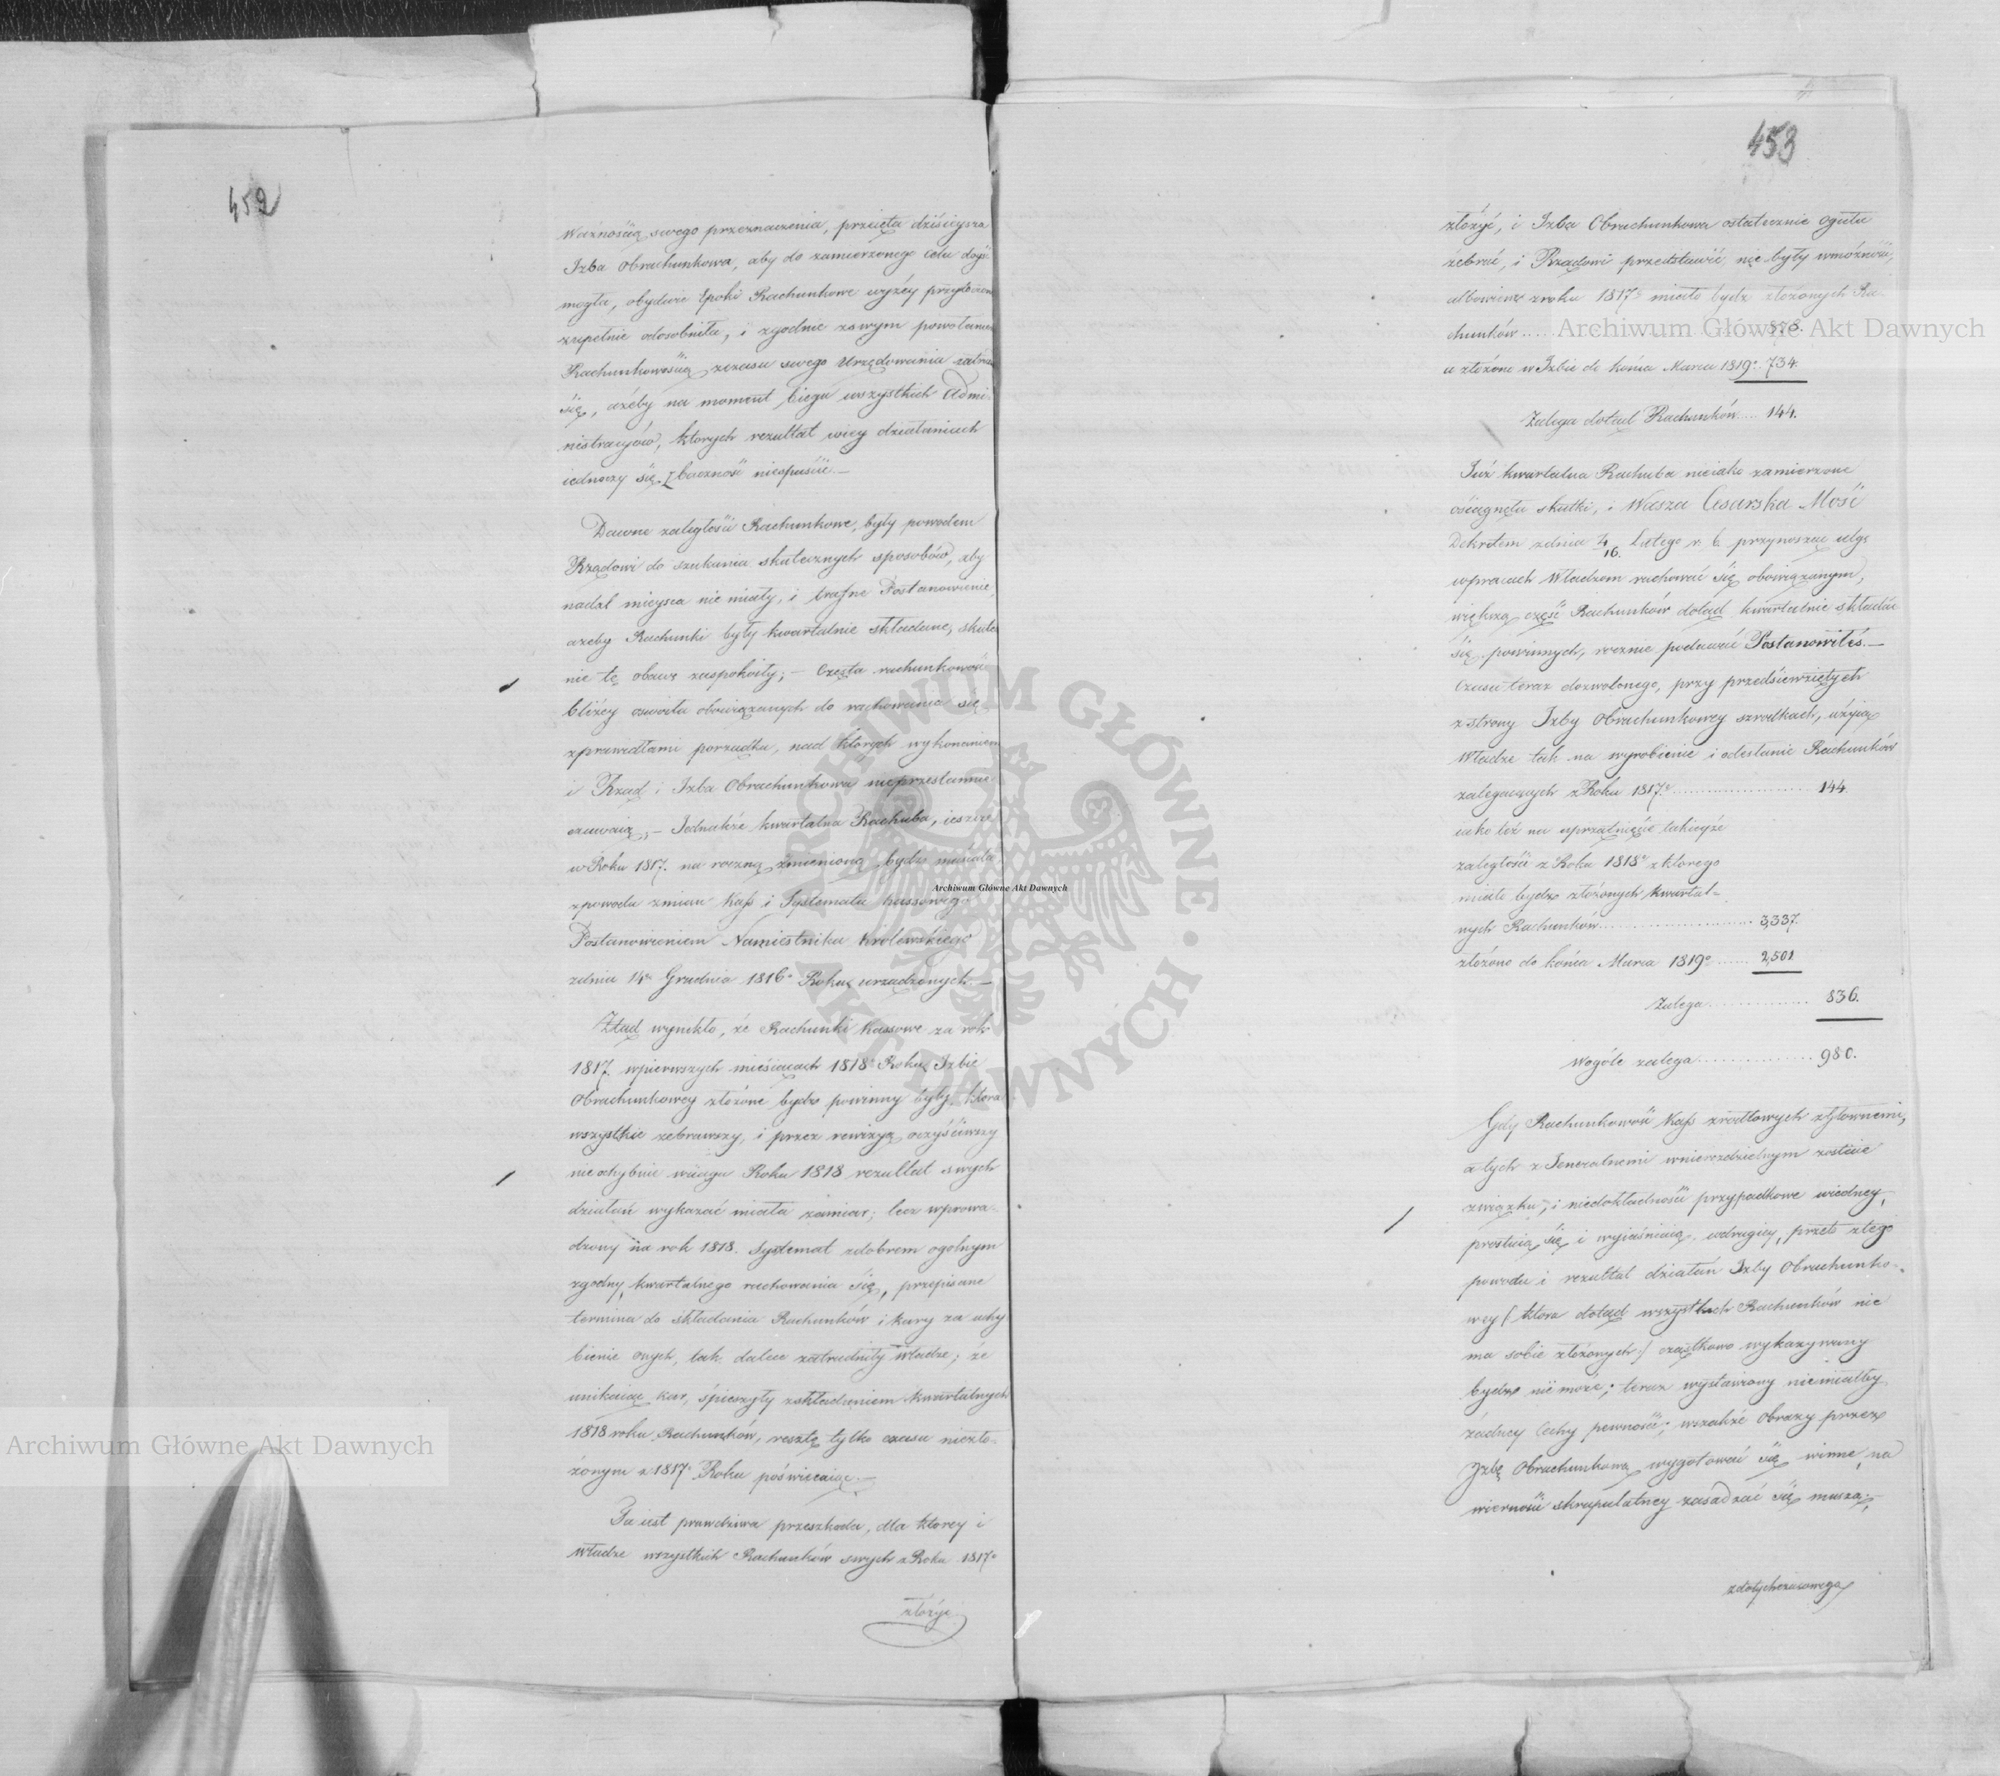 452
Ważnością swego przeznaczenia, przejęta dzisieysza
Izba Obrachunkowa, aby do zamierzonego Celu doyść
mogła, obydwie Epoki Rachunkowe wyżéy przytoczone
zupełnie odosobniła, i zgodnie zswym powołaniem
Rachunkowością zczasu swego Urzędowania zatrudnia
się, ażeby na moment biegu wszystkich Admi-
nistracyów, których rezultat wiey działaniach
iednoczy się zbaczności niespuście.—
Dawne zaległości Rachunkowe, były powodem
Rządowi do szukania skutecznych sposobów, aby
nadal mieysca nie miały, i trafne Postanowienie,
ażeby Rachunki były kwartalnie składane, skutecz
nie tę obawę zaspokoiły; — Częsta rachunkowość
bliżey oswaia obowiązanych do rachowania się
zprawidłami porządku, nad których wykonaniem
i Rząd i Izba Obrachunkowa nieprzestannie
czuwaią; — Jednakże kwartalna Rachuba, ieszcze
w Roku 1817. na roczną zmienioną bydź musiała,
zpowodu zmian Kass i Systematu kassowego
Postanowieniem Namiestnika Królewskiego
zdnia 14° Grudnia 1816° Roku urządzonych.—
Ztąd wynikło, że Rachunki Kassowe za rok
1817. wpierwszych miesiącach 1818° Roku Izbie
Obrachunkowey złożone bydź powinny były, która
wszystkie zebrawszy, i przez rewizyą oczyściwszy
nieochybnie wciągu Roku 1818 rezultat swych
działań wykazać miała zamiar; lecz wprowa-
dzony na rok 1818. Systemat zdobrem ogólnym
zgodny, kwartalnego rachowania się, przepisane
termina do składania Rachunków i kary za uchy
bienie onych, tak dalece zatrudniły Władze; że
unikaiąc kar, śpieszyły zskładaniem kwartalnych
1818 roku Rachunków, resztę tylko czasu niezło-
żonym z 1817° Roku poświęcaiąc.—
Ta iest prawdziwa przeszkoda, dla którey i
Władze wszystkich Rachunków swych z Roku 1817°
złożyć
453
złożyć, i Izba Obrachunkowa ostatecznie ogółu
zebrać, i Rządowi przedstawić nie były wmożności,
albowiem zroku 1817° miało bydź złożonych Ra-
chunków ... 878.
a złożono w Izbie do końca Marca 1819° 734.
Zalega dotąd Rachunków .... 144.
Już kwartalna Rachuba nieiako zamierzone
osiągnęła skutki, i Wasza Cesarska Mość
Dekretem zdnia 4/16. Lutego r. b. przynosząc ulgę
wpracach Władzom rachować się obowiązanym,
większą część Rachunków dotąd kwartalnie składać
się powinnych, rocznie podawać Postanowiłeś.—
Czasu teraz dozwolonego, przy przedsięwziętych
z strony Izby Obrachunkowey szrodkach, użyią
Władze tak na wyrobienie i odesłanie Rachunków
zalegaiących z Roku 1817° ........ 144.
iako też na uprzątnięcie takieyże
zaległości z Roku 1818° z którego
miało bydź złożonych kwartal-
nych Rachunków ........ 3,337.
złożono do końca Marca 1819° ...... 2,501
Zalega ........ 836.
Wogóle zalega ........ 980.
Gdy Rachunkowość Kass źródłowych zGłownemi,
a tych z Jeneralnemi wnierozdzielnym zostaie
związku, i niedokładności przypadkowe wiedney,
prostuią się i wyiaśniaią wdrugiey, przeto ztego
powodu i rezultat działań Izby Obrachunko-
wey (która dotąd wszystkich Rachunków nie
ma sobie złożonych) cząstkowo wykazywany
bydź nie może; teraz wystawiony niemiałby
żadney Cechy pewności; wszakże Obrazy przez
Izbę Obrachunkową wygotować się winne, na
wierności skrupulatney zasadzać się muszą;
zdotychczasowego
Archiwum Główne Akt Dawnych
Archiwum Główne Akt Dawnych
Archiwum Główne Akt Dawnych
ARCHIWUM GŁÓWNE • AKT DAWNYCH •